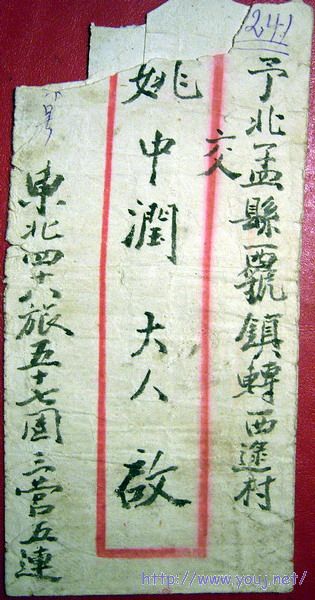 241
予北孟縣西虢鎮轉西逯村
交
姚中潤大人啟
東北四十六旅五十七团三营五連
http://www.youj.net/